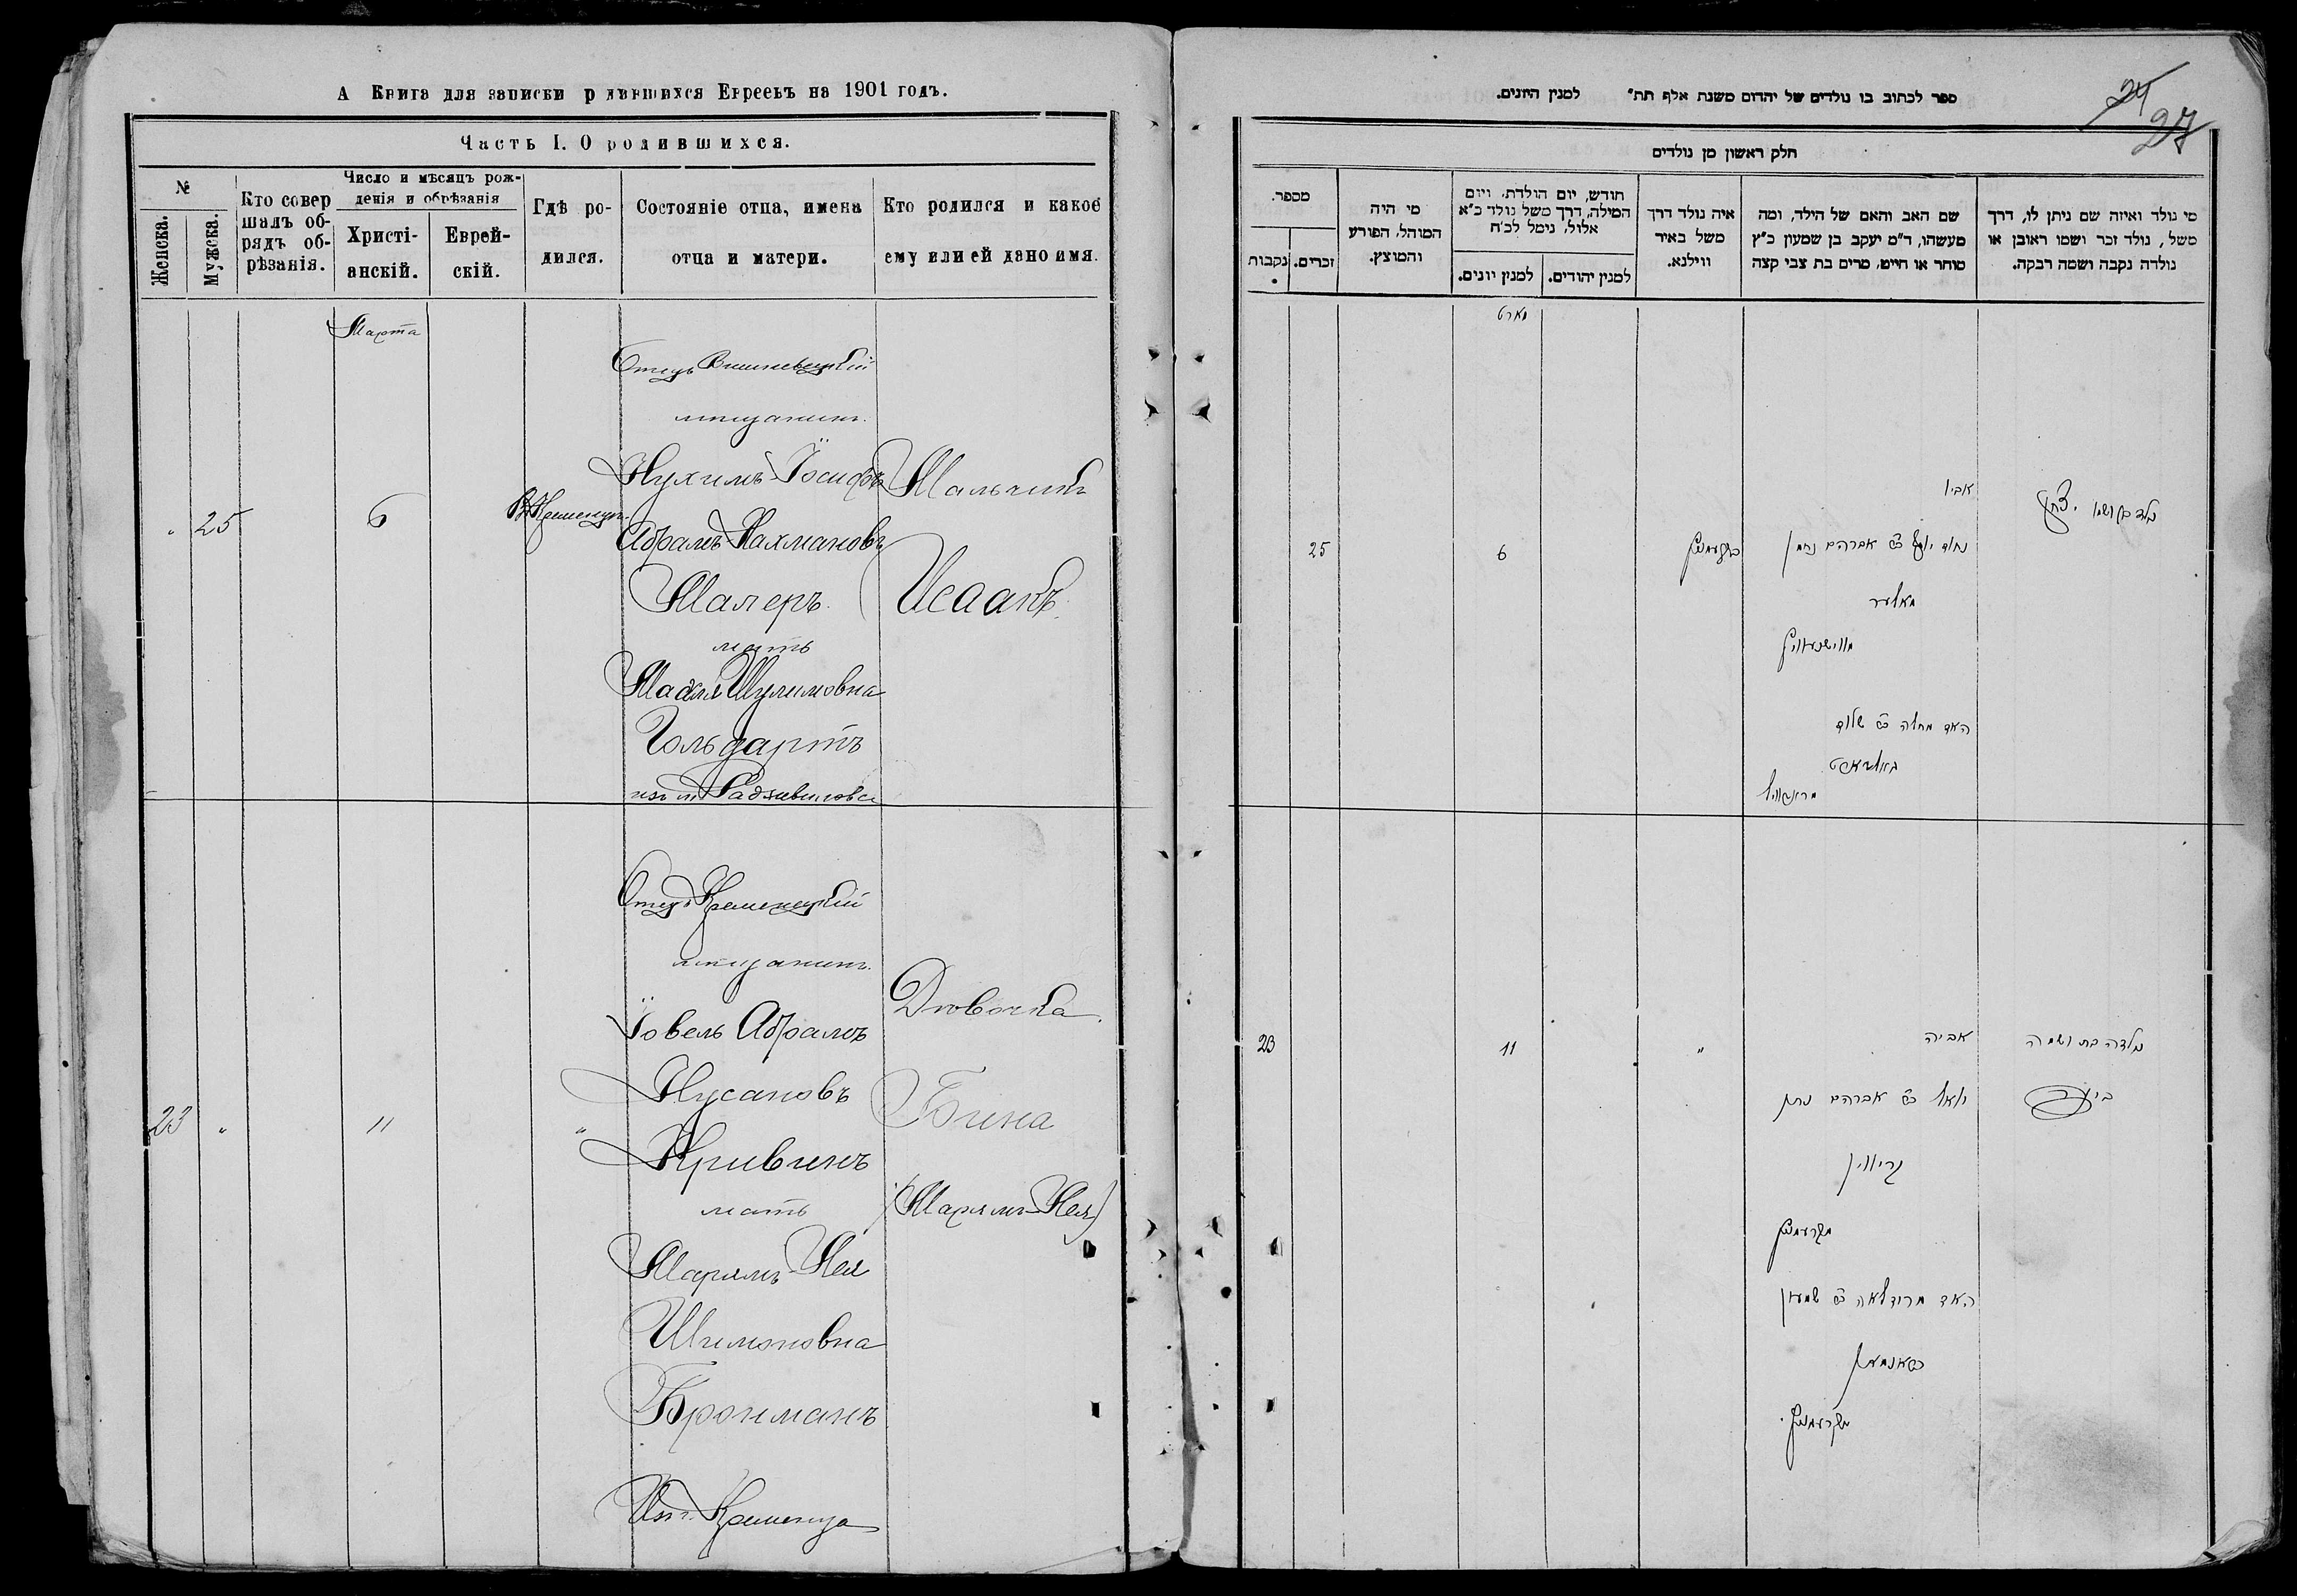 А Книга для записки р дившихся Евреевъ на 1901 годъ.
Часть I. О родившихся.
№
Женска.
Мужска.
Кто совер
шалъ об-
рядъ об-
рѣзанія.
Число и мѣсяцъ рож-
денія и обрѣзанія
Христі-
анскій.
Еврей-
скій.
Гдѣ ро-
дился.
Состояніе отца, имена
отца и матери.
Кто родился и какое
ему или ей дано имя.
Марта
„ 25
6
Отецъ Вишневецкій
мѣщанинъ
Нухимъ-Іосифъ
Абрамъ-Нахмановъ
Малеръ
мать
Шулимовна
Гольдартъ
изъ м. Радзивилова
Мальчикъ
Исаакъ
23 „
11
„
Отецъ Кременецкій
мѣщанинъ
Іовель Абрамъ
Нусановъ
Кривинъ
мать
Марямъ-Нея
Шимоновна
Бронманъ
Изъ г. Кременца
Дѣвочка
Бина
(Марямъ-Нея)
24
27
ספר לכתוב בו נולדים של יהדום משנת אלף תת״ למנין היונים.
חלק ראשון מן נולדים
מספר.
נקבות
זכרים.
מי היה
המוהל, הפורע
והמוצץ.
חודש, יום הולדת, ויום
המילה, דרך משל נולד כ״א
אלול, נימל לכ״ח
למנין יונים.
למנין יהודים.
איה נולד דרך
משל באיר
ווילנא.
שם האב והאם של הילד, ומה
מעשהו, ד״מ יעקב בן שמעון כ״ץ
סוחר או חייט, מרים בת צבי קצה
מי נולד ואיזה שם ניתן לו, דרך
משל, נולד זכר ושמו ראובן או
נולדה נקבה ושמה רבקה.
מארט
25
6
אביו
אברהם נחמן
מאלער
23
11
„
אביה
יואל אברהם נתן
קריווין
נולדה בת ושמה